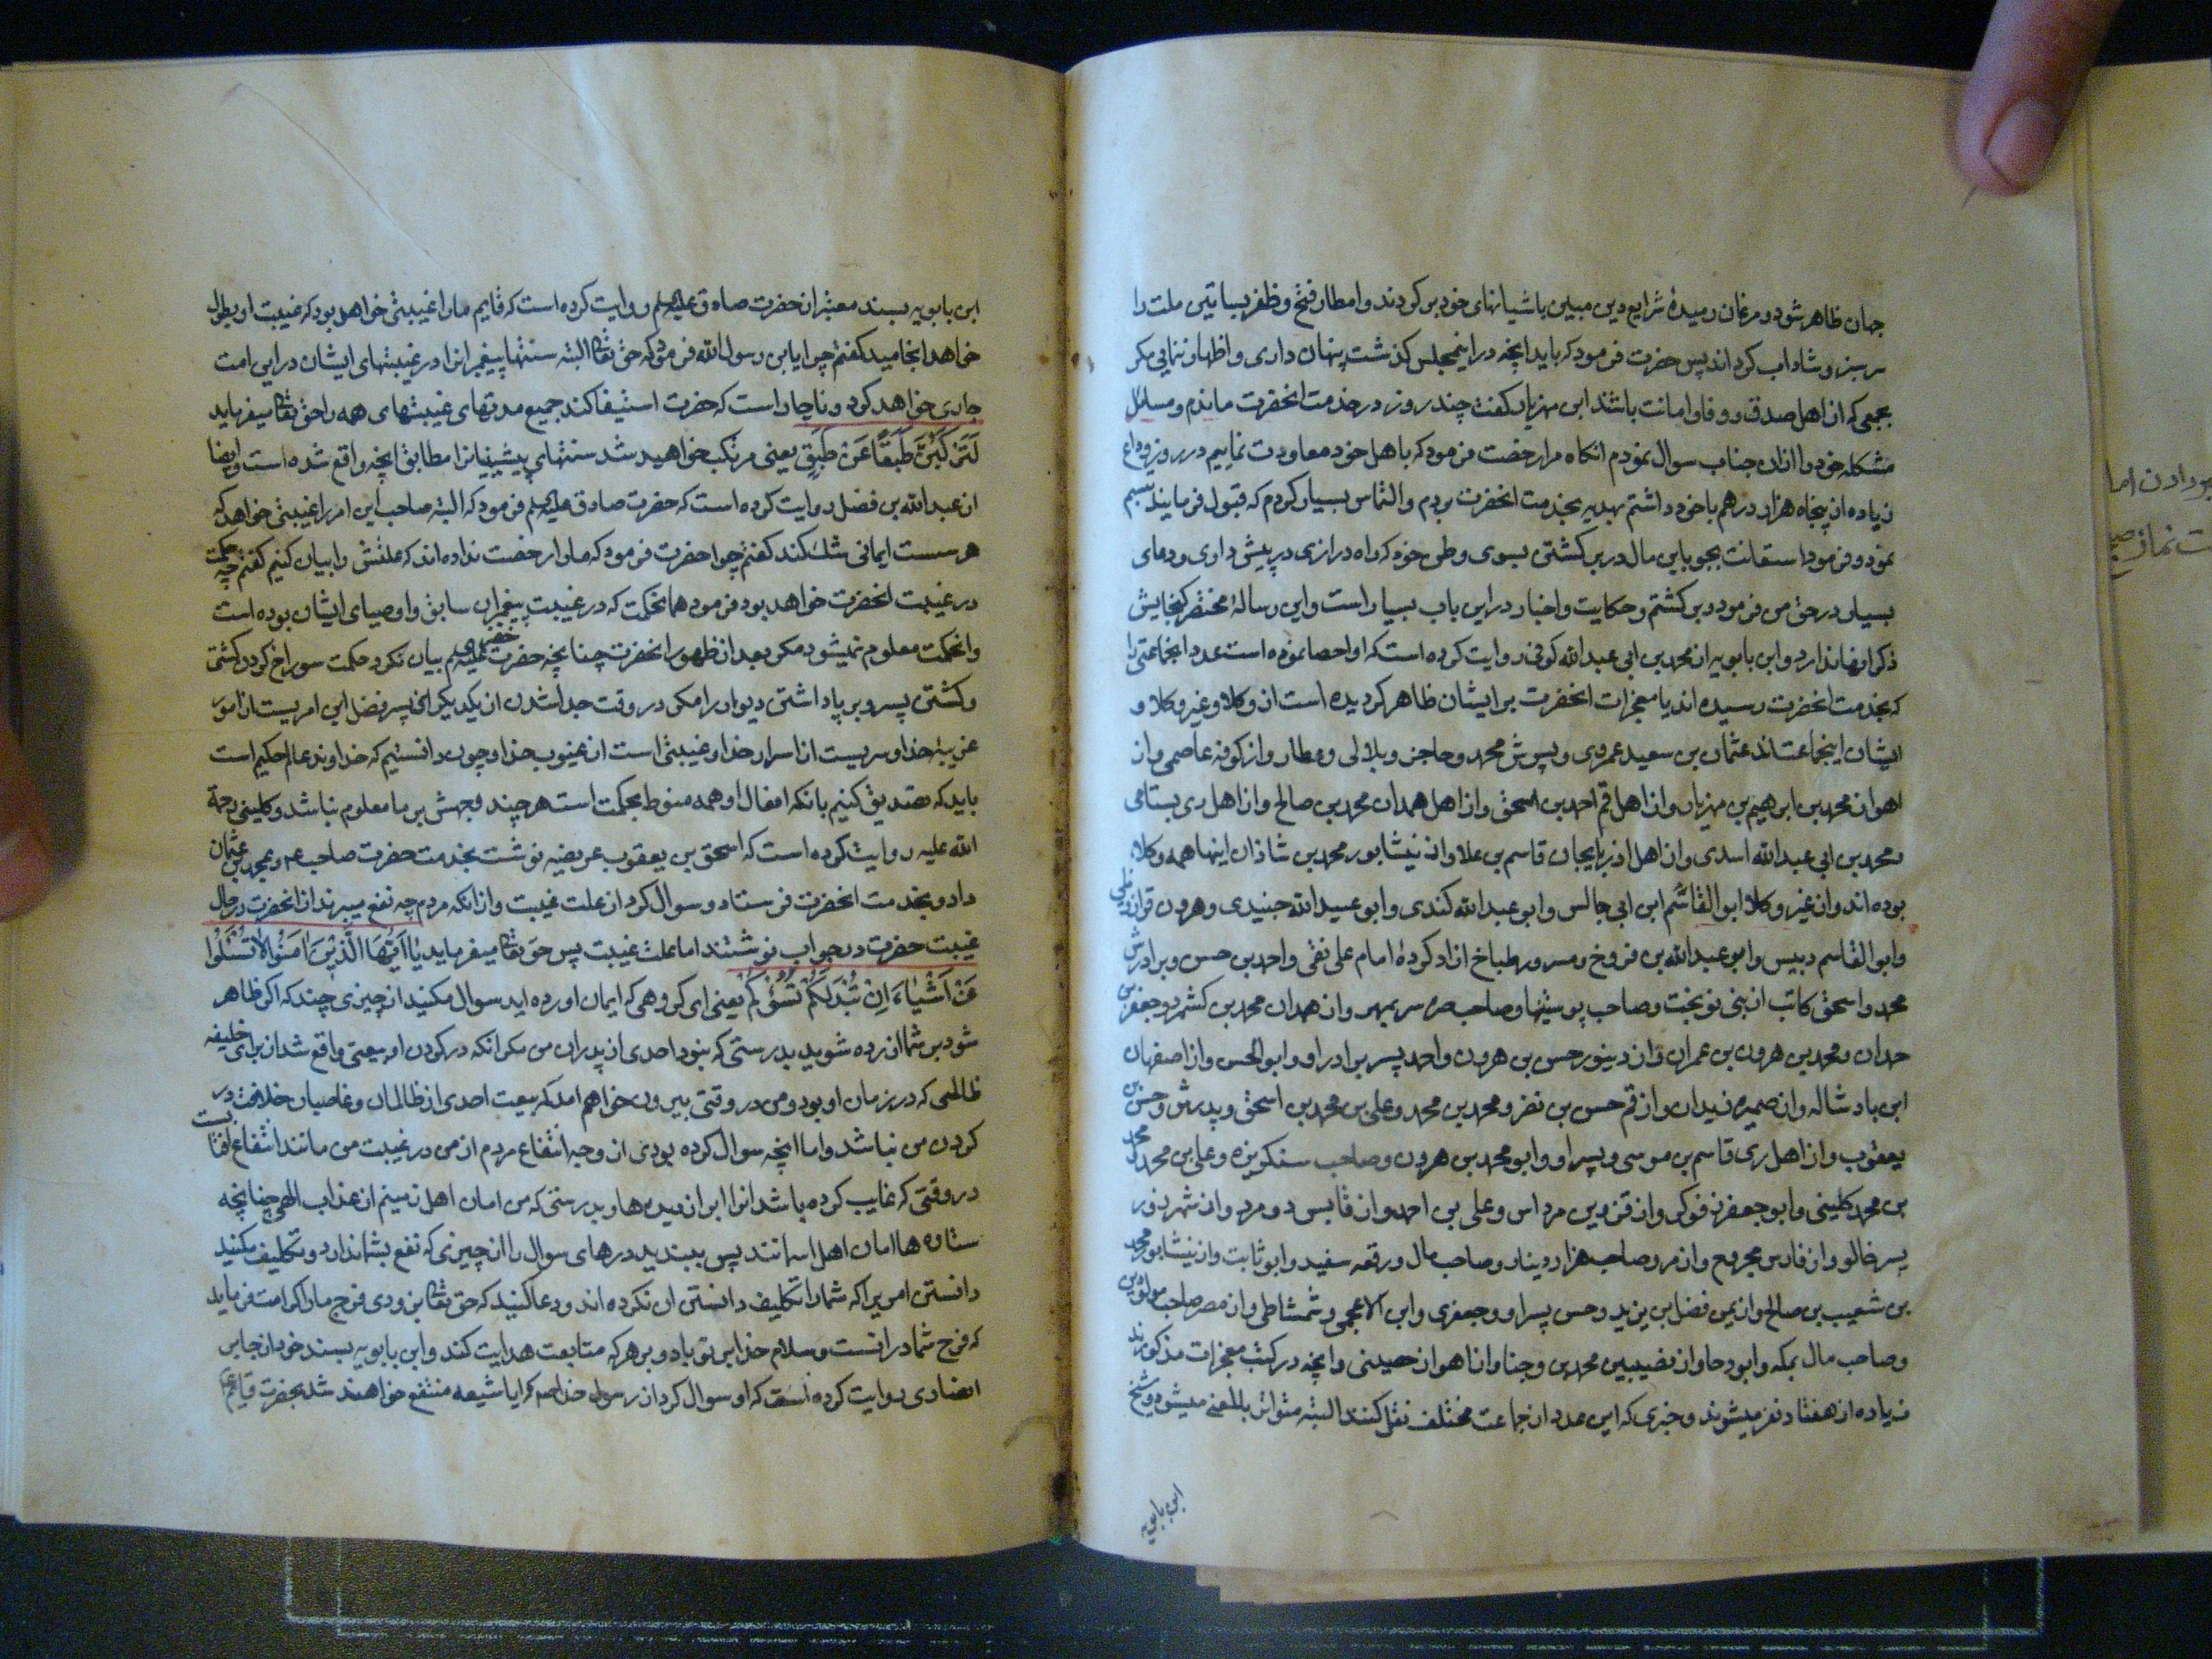 جهان ظاهر شود و مرغان رمیدهٔ شرایع دین مبین باشیانهای خود بر کردند و امطار فتح و ظفر بساتین ملت را
سر سبز و شاداب کرداند پس حضرت فرمود که باید انچه در اینمجلس کذشت پنهان داری و اظهار ننمایی مکر
بجمعی که از اهل صدق و وفا و امانت باشند ابن مهزیار کفت چند روز در خدمت انحضرت ماندم و مسایل
مشکله خود را ازان جناب سوال نمودم انکاه مرا رخصت فرمود که باهل خود معاودت نمایم در روز وداع
زیاده از پنجاه هزار درهم با خود داشتم بهدیه بخدمت انحضرت بردم و التماس بسیار کردم که قبول فرمایند تبسم
نمود و فرمود استعانت بجو باین مال در بر کشتن بسوی وطن خود که راه درازی در پیش داری و دعای
بسیار در حق من فرمود و بر کشتم و حکایت و اخبار در این باب بسیار است و این رسالهٔ مختصر کنجایش
ذکر انها ندارد و ابن بابویه از محمد بن ابی عبدالله کوفی روایت کرده است که او احصا نموده است عدد انجماعتی را
که بخدمت انحضرت رسیده اند یا معجزات انحضرت بر ایشان ظاهر کردیده است از وکلا و غیر وکلا و
ایشان اینجماعت اند عثمان بن سعید عمروی و پسرش محمد و حاجز و بلالی و عطار و از کوفه عاصمی و از
اهواز محمد بن ابرهیم بن مهزیار و از اهل قم احمد بن اسحق و از اهل همدان محمد بن صالح و از اهل ری بسامی
و محمد بن ابی عبدالله اسدی و از اهل اذربایجان قاسم بن علا و از نیشابور محمد بن شاذان اینها همه وکلاء
بوده اند و از غیر وکلا ابو القاسم ابن ابی حالس و ابو عبدالله کندی و ابو عبدالله جنیدی و هرون قزاز و نیلی
و ابو القاسم دبیس و ابو عبدالله بن فروخ و مسرور طباخ ازاد کردهٔ امام علی نقی و احمد بن حسن و برادرش
محمد و اسحق کاتب از بنی نوبخت و صاحب پوستینها و صاحب صره سر بمهر و از همدان محمد بن کشمرد و جعفر بن
حمدان و محمد بن هرون بن عمران و از دینور حسن بن هرون و احمد پسر برادر او و ابو الحسن و از اصفهان
ابن بادشاله و از صمیره زیدان و از قم حسن بن نضر و محمد بن محمد و علی بن محمد بن اسحق و پدرش و حسن بن
یعقوب و از اهل ری قاسم بن موسی و پسر او و ابو محمد بن هرون و صاحب سنکریزه و علی بن محمد و محمد
بن محمد کلینی و ابو جعفر رفوکر و از قزوین مرداس و علی بن احمد و از قابس دو مرد و از شهر زور
پسر خالو و از فارس مجروح و از مرو صاحب هزار دینار و صاحب مال و رقعه سفید و ابو ثابت و از نیشابور محمد
بن شعیب بن صالح و از یمن فضل بن یزید و حسن پسر او و جعفری و ابن الاعجمی و شمشاطی و از مصر صاحب مولودین
و صاحب مال بمکه و ابو رجا و از نصیبین محمد بن وجنا و از اهواز حصینی و انچه در کتب معجزات مذکورند
زیاده از هفتاد نفر میشوند و خبری که این عدد از جماعت مختلف نقل کنند البته متواتر بالمعنی میشود و شیخ
ابن بابویه
ابن بابویه بسند معتبر از حضرت صادق علیه السلم روایت کرده است که قایم ما را غیبتی خواهد بود که غیبت او بطول
خواهد انجامید کفتم چرا یابن رسول الله فرمود که حق تعالی البته سنتها پیغمبرانرا در غیبتهای ایشان در این امت
جاری خواهد کرد و ناچار است که حضرت استیفا کند جمیع مدتهای غیبتهای همه را حق تعالی میفرماید
لَتَرْكَبُنَّ طَبَقًا عَنْ طَبَقٍ یعنی مرتکب خواهید شد سنتهای پیشینیانرا مطابق انچه واقع شده است و ایضا
از عبدالله بن فضل روایت کرده است که حضرت صادق علیه السلم فرمود که البته صاحب این امر را غیبتی خواهد که
هر سست ایمانی شك کند کفتم چرا حضرت فرمود که ما را رخصت نداده اند که علتش را بیان کنیم کفتم چه حکمت
در غیبت انحضرت خواهد بود فرمود همانحکمت که در غیبت پیغمبران سابق و اوصیای ایشان بوده است
و انحکمت معلوم نمیشود مکر بعد از ظهور انحضرت چنانچه حضرت خضر علیه السلم بیان نکرد حکمت سوراخ کردن کشتی
و کشتن پسر و بر پا داشتن دیوار را مکر در وقت جدا شدن از یکدیکر ای پسر فضل این امریست از امور
غریبهٔ خدا و سریست از اسرار خدا و غیبتی است از غیوب خدا و چون دانستیم که خداوند عالم حکیم است
باید که تصدیق کنیم بانکه افعال او همه منوط بحکمت است هر چند وجهش بر ما معلوم نباشد و کلینی رحمة
الله علیه روایت کرده است که اسحق بن یعقوب عریضه نوشت بخدمت حضرت صاحب ع و بمحمد بن عثمان
داد و بخدمت انحضرت فرستاد و سوال کرد از علت غیبت و از انکه مردم چه نفع میبرند از انحضرت در حال
غیبت حضرت در جواب نوشتند اما علت غیبت پس حق تعالی میفرماید یَا اَیُّهَا الَّذِینَ اٰمَنُوا لَا تَسْئَلُوا
عَنْ اَشْیَاءَ اِنْ تُبْدَ لَکُمْ تَسُؤْکُمْ یعنی ای کروهی که ایمان اورده اید سوال مکنید از چیزی چند که اکر ظاهر
شود بر شما ازرده شوید بدرستی که نبود احدی از پدران من مکر انکه در کردن او بیعتی واقع شد از برای خلیفه
ظالمی که در زمان او بود و من در وقتی بیرون خواهم امد که بیعت احدی از ظالمان و غاصبان خلافت در
کردن من نباشد و اما انچه سوال کرده بودی از وجه انتفاع مردم از من در غیبت من مانند انتفاع افتابست
در وقتی که غایب کرده باشد انرا ابر از دیدها و بدرستی که من امان اهل زمینم از عذاب الهی چنانچه
ستاره ها امان اهل اسمانند پس ببندید درهای سوال را از چیزی که نفع بشما ندارد و تکلیف مکنید
دانستن امریرا که شما را تکلیف دانستن ان نکرده اند و دعا کنید که حق تعالی بزودی فرج ما را کرامت فرماید
که فرج شما در انست و سلام خدا بر تو باد و بر هر که متابعت هدایت کند و ابن بابویه بسند خود از جابر
انصاری روایت کرده است که او سوال کرد از رسول خدا صلم که ایا شیعه منتفع خواهند شد بحضرت قایم ع